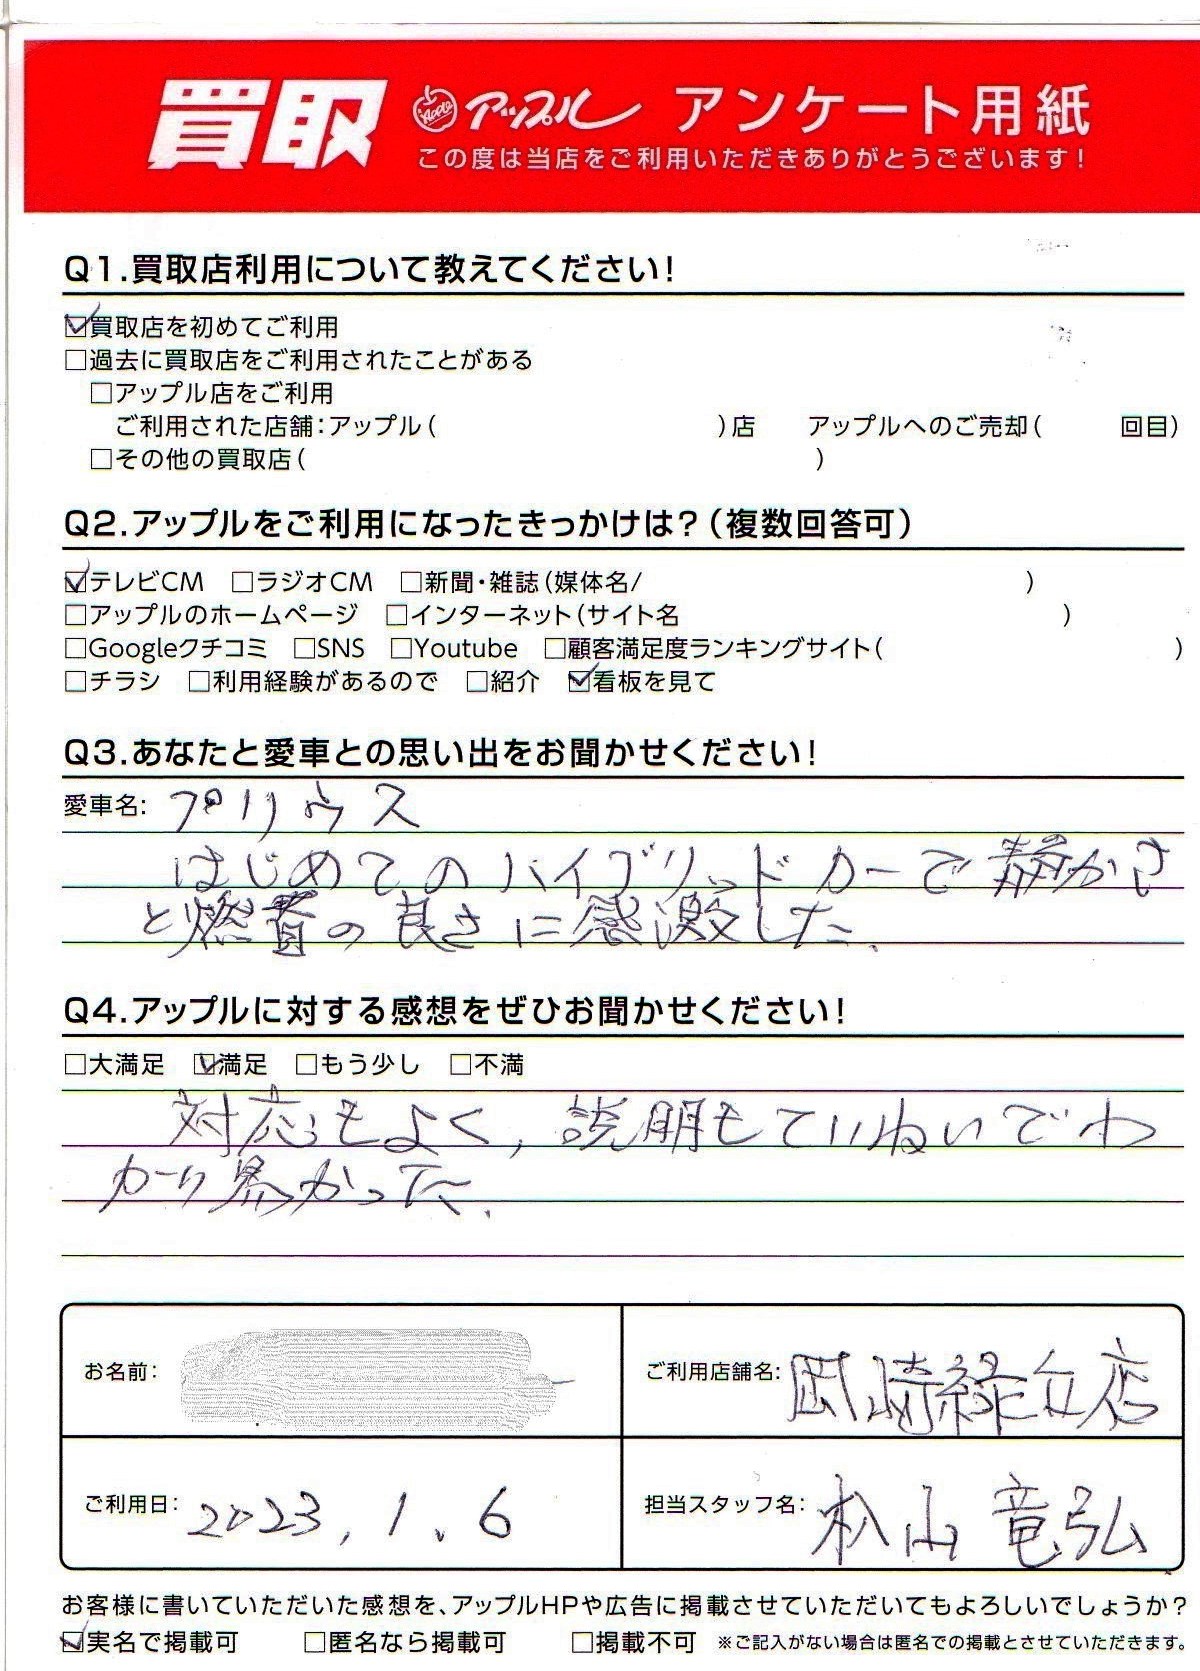 買取 Apple アップル アンケート用紙
この度は当店をご利用いただきありがとうございます!
Q1.買取店利用について教えてください!
☑買取店を初めてご利用
□過去に買取店をご利用されたことがある
□アップル店をご利用
ご利用された店舗:アップル( )店 アップルへのご売却( 回目)
□その他の買取店( )
Q2.アップルをご利用になったきっかけは?(複数回答可)
☑テレビCM □ラジオCM □新聞・雑誌(媒体名/ )
□アップルのホームページ □インターネット(サイト名 )
□Googleクチコミ □SNS □Youtube □顧客満足度ランキングサイト( )
□チラシ □利用経験があるので □紹介 ☑看板を見て
Q3.あなたと愛車との思い出をお聞かせください!
愛車名: プリウス
はじめてのハイブリッドカーで静かさ
と燃費の良さに感激した.
Q4.アップルに対する感想をぜひお聞かせください!
□大満足 ☑満足 □もう少し □不満
対応もよく,説明もていねいでわ
かり易かった.
お名前:
ご利用店舗名: 岡崎緑丘店
ご利用日: 2023.1.6
担当スタッフ名: 松山 竜弘
お客様に書いていただいた感想を、アップルHPや広告に掲載させていただいてもよろしいでしょうか?
☑実名で掲載可 □匿名なら掲載可 □掲載不可 ※ご記入がない場合は匿名での掲載とさせていただきます。